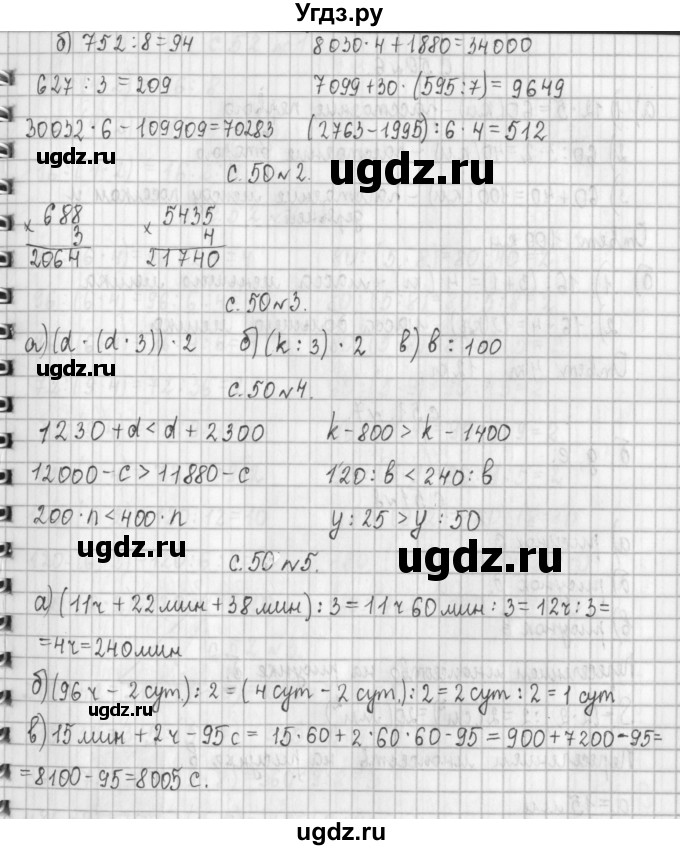 Угдз.ру
б) 752 : 8 = 94 8030 · 4 + 1880 = 34000
627 : 3 = 209 7099 + 30 · (595 : 7) = 9649
30032 · 6 - 109909 = 70283 (2763 - 1995) : 6 · 4 = 512
ugdz.ru
ugdz.ru
с. 50 №2.
× 688 × 5435
3 4
2064 21740
с. 50 №3.
а) (d · (d · 3)) · 2 б) (k : 3) · 2 в) в : 100
ugdz.ru
с. 50 №4.
1230 + d < d + 2300 k - 800 > k - 1400
12000 - с > 11880 - с 120 : в < 240 : в
200 · n < 400 · n у : 25 > у : 50
ugdz.ru
ugdz.ru
с. 50 №5.
а) (11ч + 22 мин + 38 мин) : 3 = 11ч 60 мин : 3 = 12ч : 3 =
= 4ч = 240 мин
б) (96 ч - 2 сут) : 2 = (4 сут - 2 сут.) : 2 = 2 сут : 2 = 1 сут
ugdz.ru
в) 15 мин + 2 ч - 95 с = 15 · 60 + 2 · 60 · 60 - 95 = 900 + 7200 - 95 =
= 8100 - 95 = 8005 с.
ugdz.ru
ugdz.ru